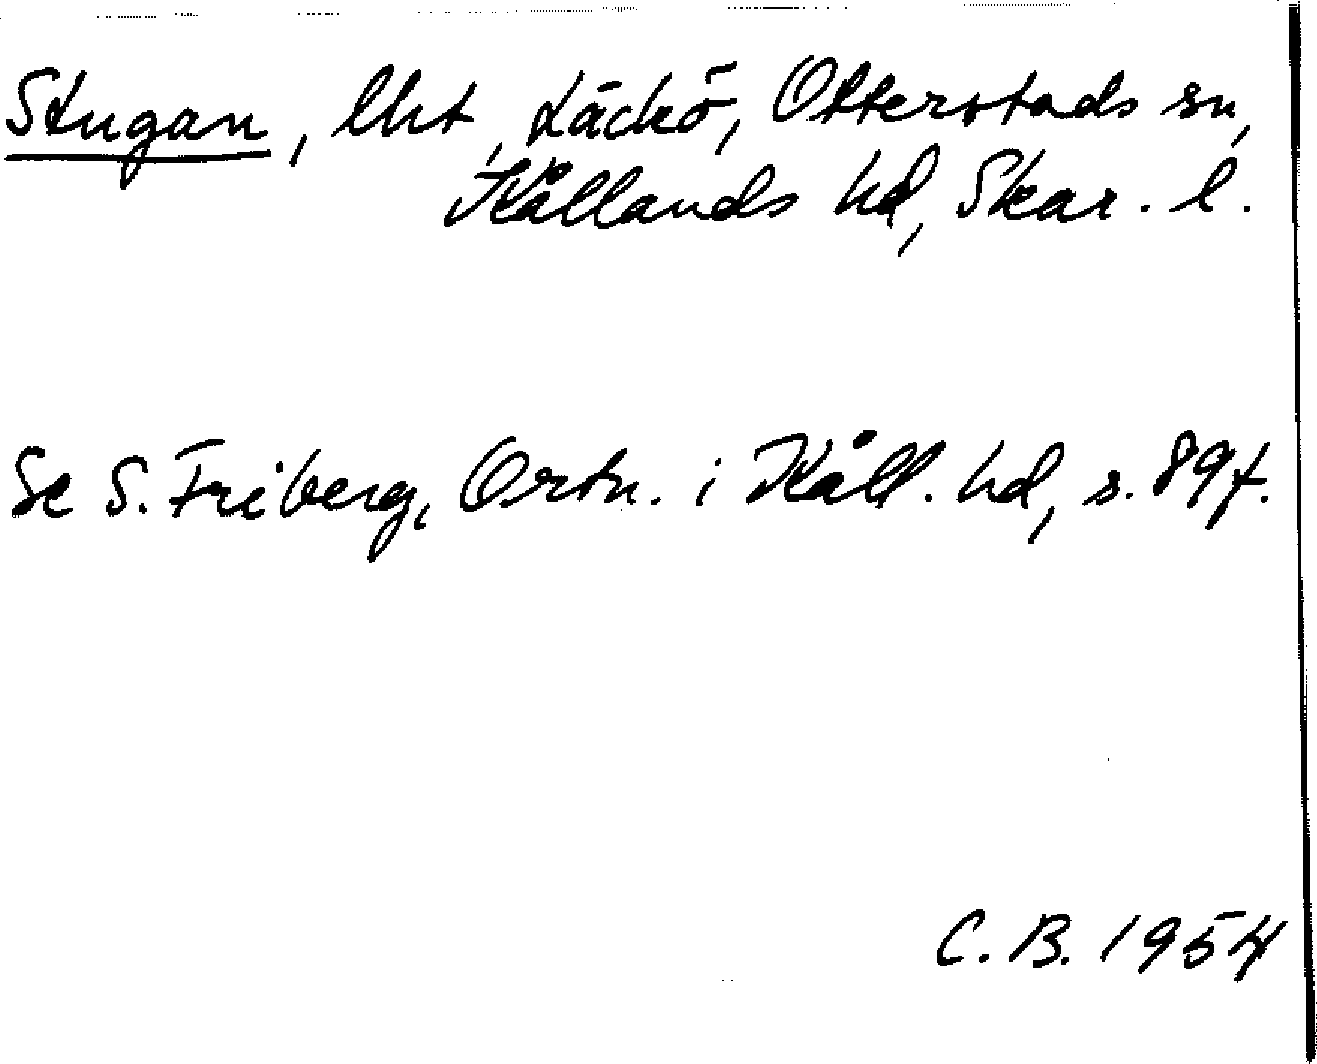 Stugan, lht, Läckö, Otterstads sn,
Kållands hd, Skar. l.
Se S. Friberg, Ortn. i Kåll. hd, s. 89f.
C. B. 1954